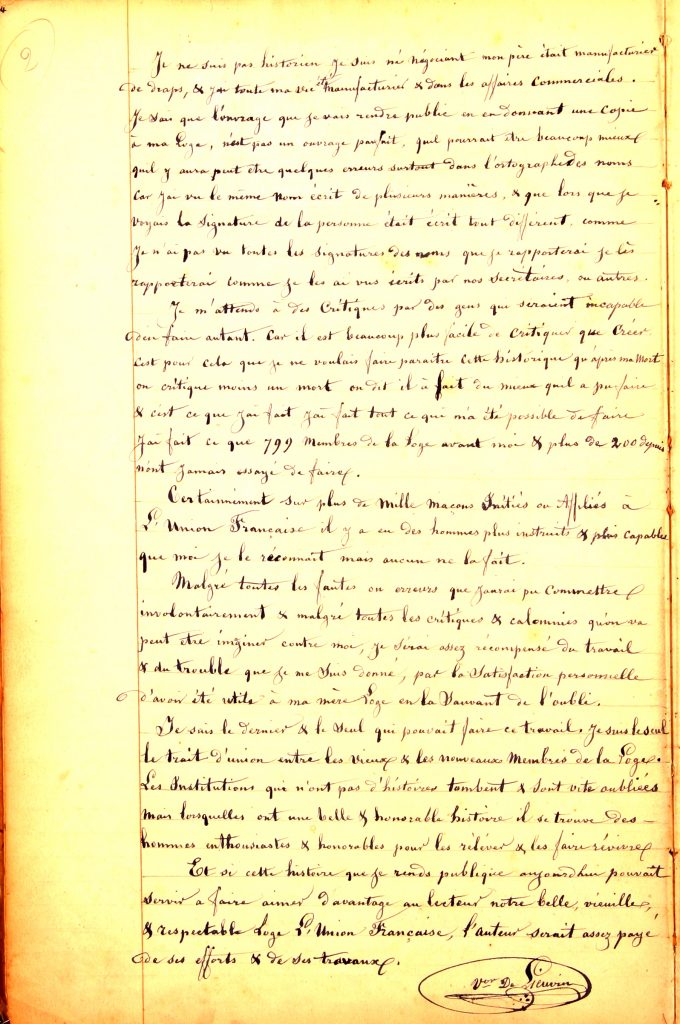 2
Je ne suis pas historien je suis né négociant mon père était manufacturier
de draps, & j'ai toute ma vie été manufacturier & dans les affaires Commerciales.
Je sais que l'ouvrage que je vais rendre public en en donnant une Copie
à ma Loge, n'est pas un ouvrage parfait, quil pourrait être beaucoup mieux
quil y aura peut être quelques erreurs surtout dans l'ortographe des noms
Car j'ai vu le même nom écrit de plusieurs manières, & que lors que je
voyais la Signature de la personne était écrit tout différent, comme
Je n'ai pas vu toutes les Signatures des noms que je rapporterai je les
rapporterai comme je les ai vus écrits par nos Secrétaires, ou autres.
Je m'attends à des Critiques par des gens que seraient incapable
d'en faire autant. Car il est beaucoup plus facile de Critiquer que Créer
C'est pour cela que je ne voulais faire paraitre Cette historique qu'après ma Mort
on critique moins un mort on dit il à fait du mieux quil a pu faire
& c'est ce que j'ai fait j'ai fait tout ce qui m'a été possible de faire
J'ai fait ce que 799 Membres de la Loge avant moi & plus de 200 depuis
n'ont jamais essayé de faire.
Certainnement sur plus de Mille Maçons Initiés ou Affiliés à
L'Union Française il y a eu des hommes plus instruits & plus Capables
que moi je le reconnait mais aucun ne la fait.
Malgré toutes les fautes ou erreurs que jaurai pu Commettre
involontairement & malgré toutes les critiques & calomnies qu'on va
peut etre imginer contre moi, je serai assez récompensé du travail
& du trouble que je me suis donné, par la Satisfaction personnelle
d'avoir été utile à ma mère Loge en la Sauvant de l'oubli.
Je suis le dernier & le Seul qui pouvait faire ce travail. Je suis le seul
le trait d'union entre les vieux & les nouveaux Membres de la Loge.
Les Institutions qui n'ont pas d'histoires tombent & sont vite oubliées
Mais lorsquelles ont une belle & honorable histoire il se trouve des
hommes enthousiastes & honorables pour les réléver & les faire révivre
Et si cette histoire que je rends publique aujourdhui pouvait
servir a faire aimer davantage au lecteur notre belle, vieille,
& respectable Loge L'Union Française, l'auteur serait assez payé
de ses efforts & de ses travaux.
Vor De Lieuvin